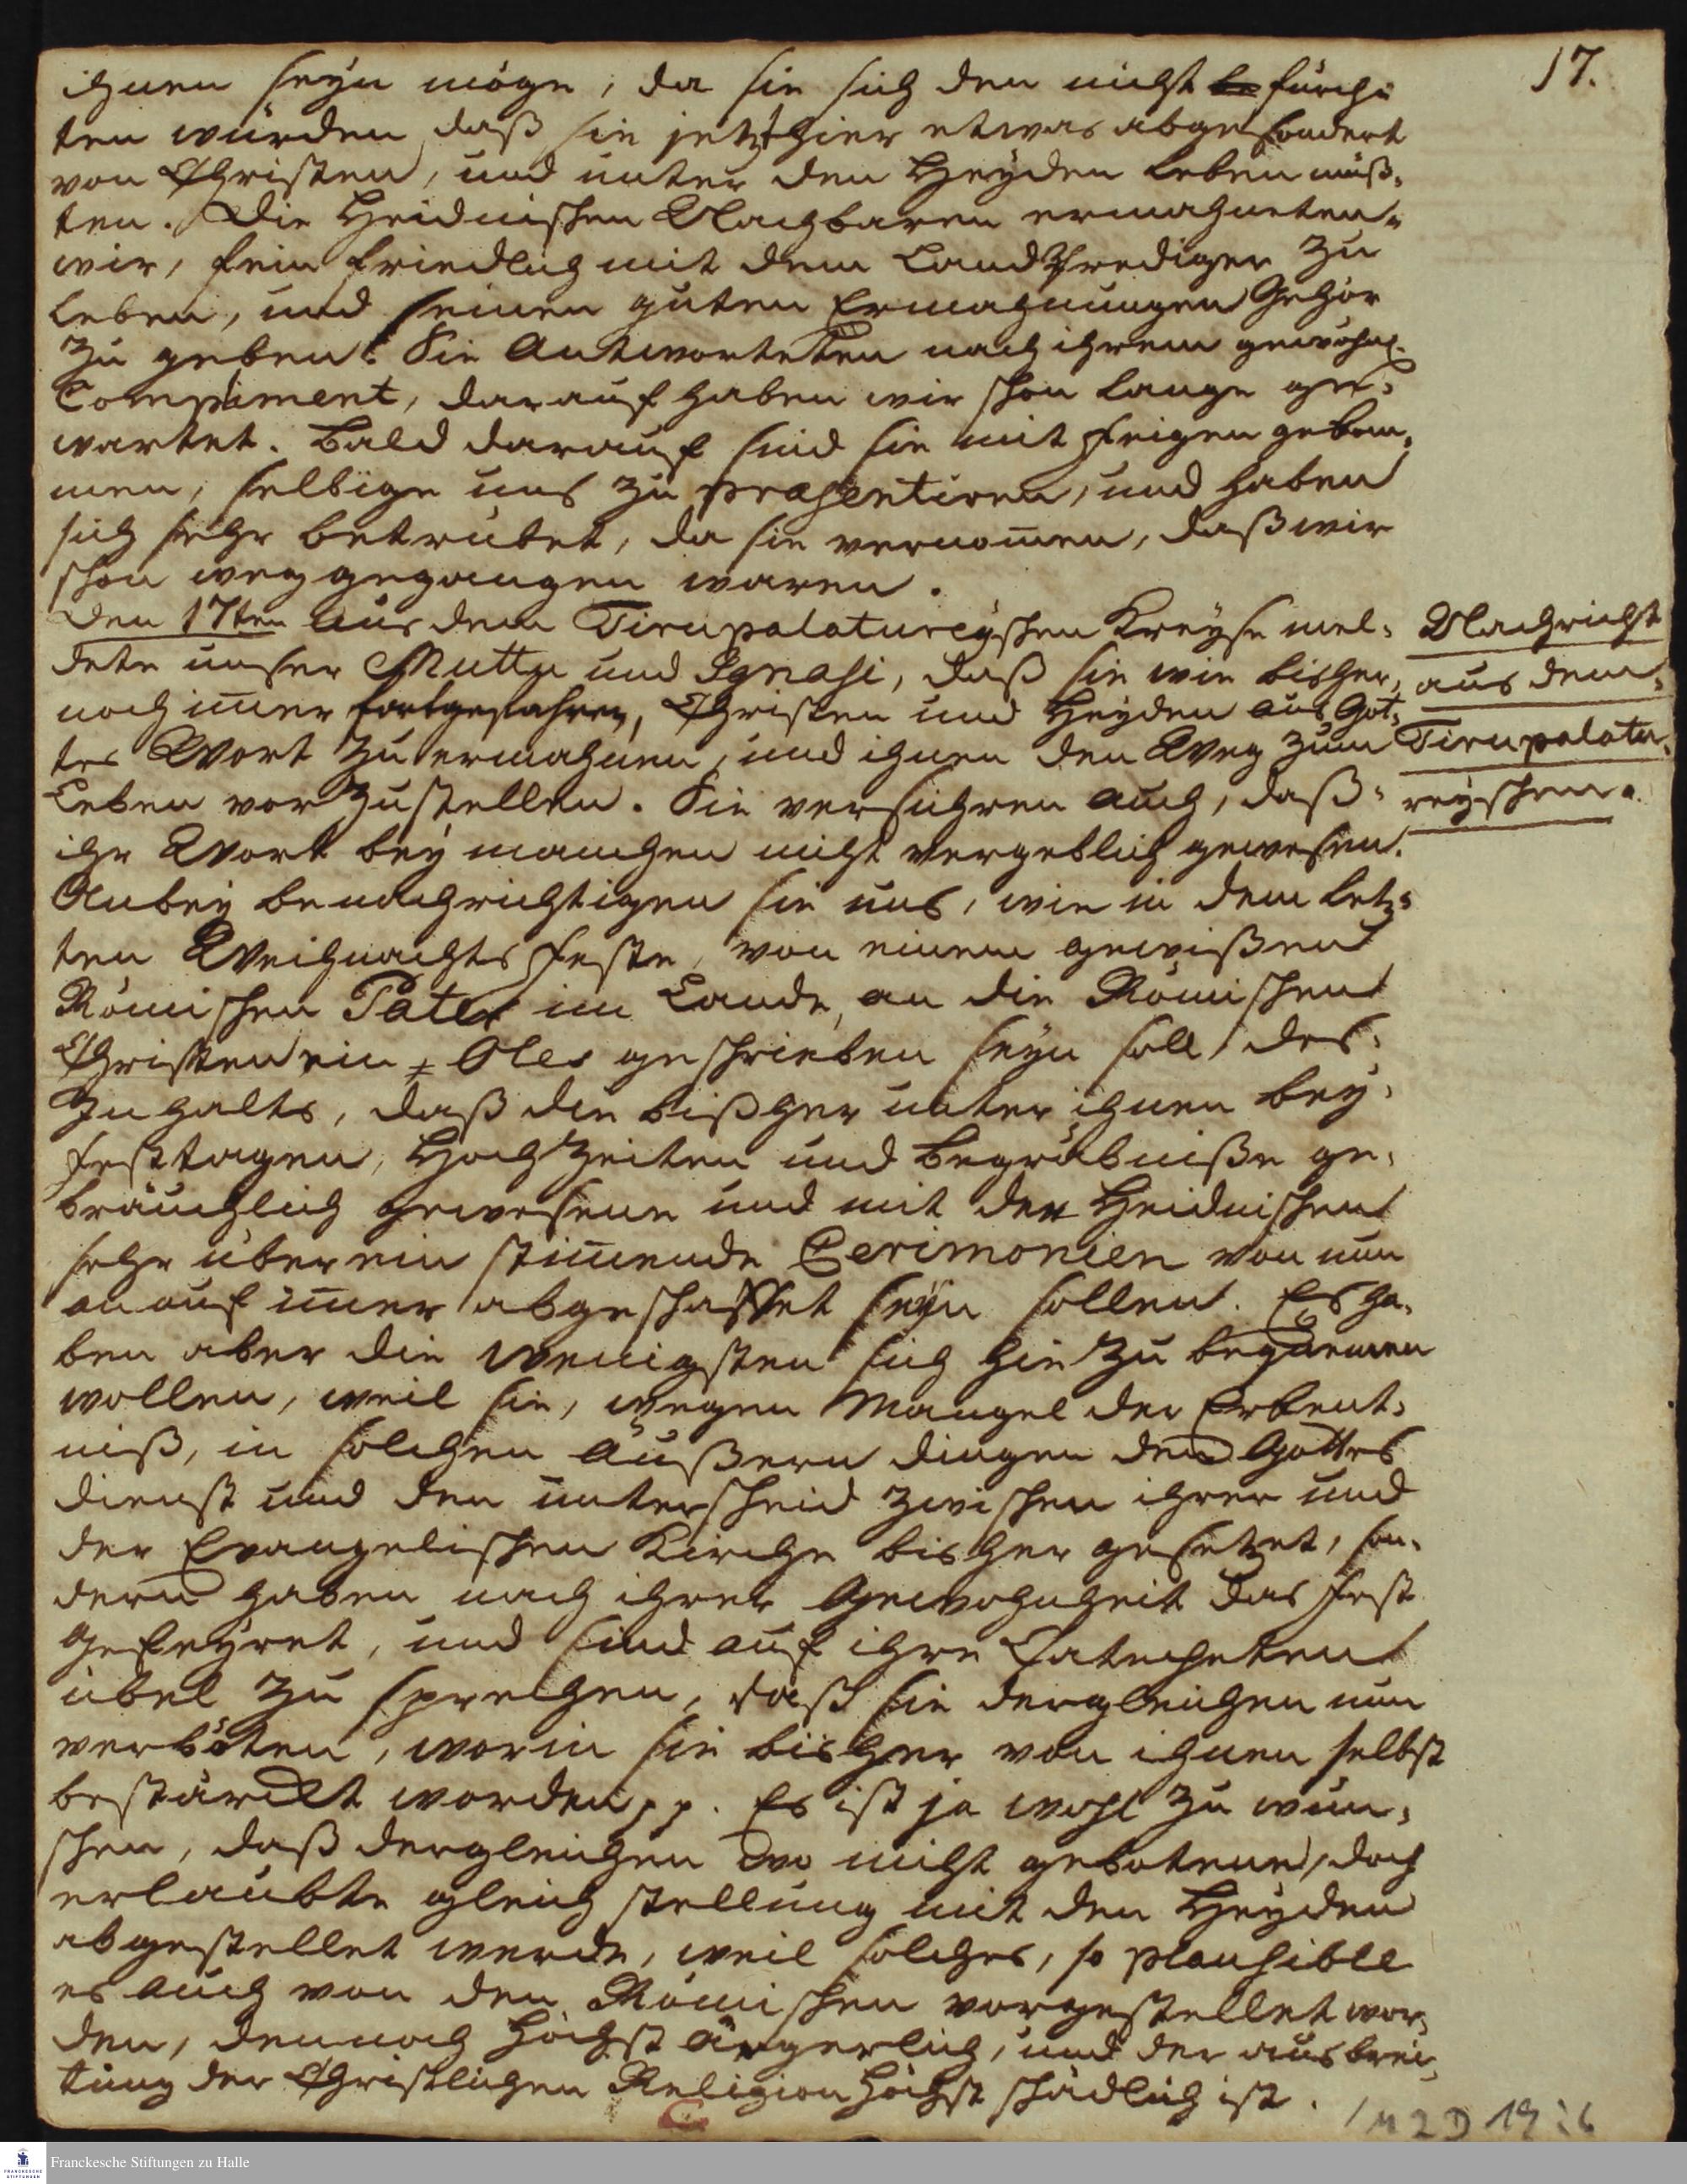 17.
ihnen seyn möge, da sie sich den nicht fürch=
ten würden, daß sie jetzt hier etwas abgesondert
von Christen, und unter den Heyden leben müß=
ten. Die Heidnischen Nachbaren ermahneten=
wir, fein friedlich mit dem LandPrediger zu
leben, und seinen guten Ermahnungen Gehör
zu geben. Sie Antworteten nach ihrem gewöhnl.
Compliment, darauf haben wir schon lange ge=
wartet. Bald darauf sind sie mit Feigen gekom=
men, selbige uns zu præsentiren, und haben
sich sehr betrübet, da sie vernom̅en, daß wir
schon weggegangen waren.
Den 17ten Aus dem Tirupalatureyschen Kreyse mel=
dete unser Muttu und Ignasi, daß sie wie bisher,
noch im̅er fortgefahren, Christen und Heyden aus Got=
tes Wort zu ermahnen, und ihnen den Weg zum
Leben vorzustellen. Sie versichren auch, daß=
ihr Wort bey manchen nicht vergeblich gewesen.
Anbey benachrichtigen sie uns, wie in dem letz=
ten Weihnachts Feste, von einem gewißen
Römischen Pater im Lande, an die Römischen
Christen ein Oles geschrieben seyn soll, des=
Inhalts, daß die bißher unter ihnen bey=
Festtagen, HochZeiten und Begräbniße ge=
bräuchlich gewesene und mit den Heidnischen
sehr überein stim̅ende Cerimonien von nun
an auf im̅er abgeschaffet seyn sollen. Es ha=
ben aber die wenigsten sich hieZu beqvemen
wollen, weil sie, wegen Mangel der Erkent=
niß, in solchen äußern dingen den Gottes
dienst und den unterscheid zwischen ihrer und
der Evangelischen Kirche bisher gesetzet, son=
dern haben nach ihrer Gewohnheit das Fest
gefeyret, und sind auf ihre Catecheten
übel zu sprechen, daß sie dergleichen nun
verböten, worin sie bisher von ihnen selbst
bestärckt worden pp. Es ist ja wohl zu wün=
schen, daß dergleichen wo nicht gebotene, doch
erlaubte gleich stellung mit den Heyden
abgestellet werde, weil solches, so plausible
es auch von den Römischen vorgestellet wor=
den, dennoch höchst ärgerlich, und der ausbrei=
tung der Christlichen Religion höchst schädlich ist.
Nachricht
aus dem=
Tirupalatu=
reyschen.
1 M 2 D 19:6
Franckesche Stiftungen zu Halle
FRANCKESCHE
STIFTUNGEN